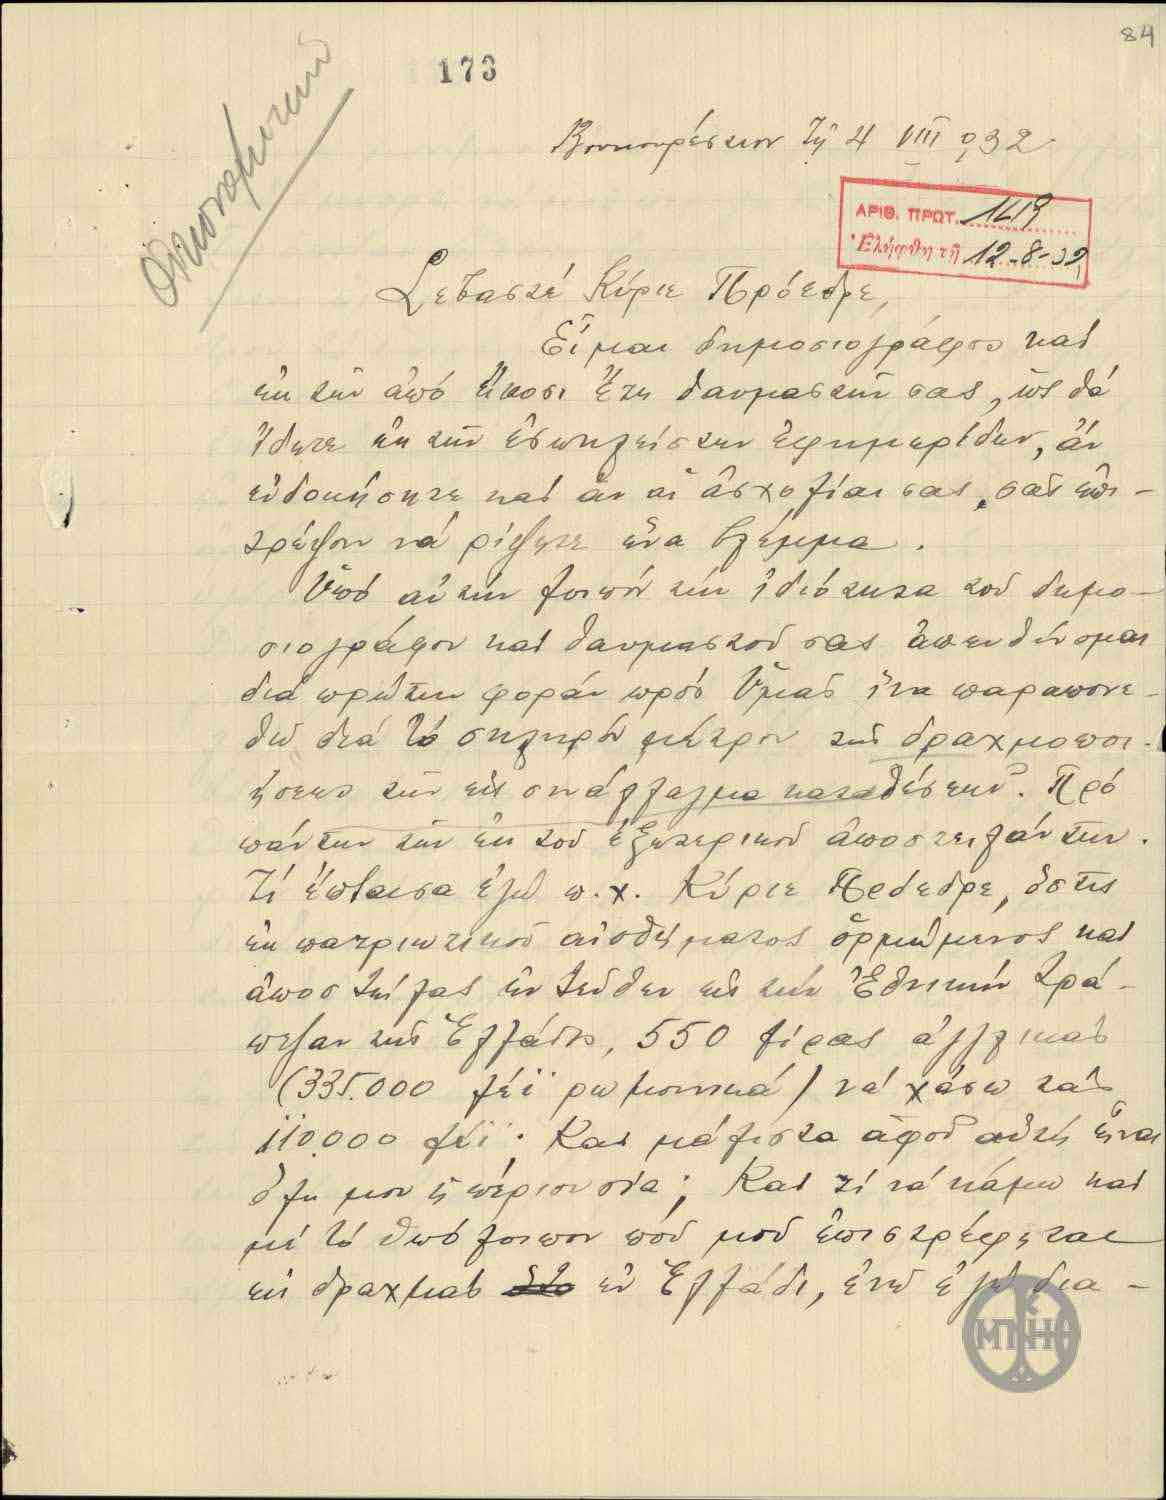 84
173
Οἰκονομικά
Βουκουρέστιον τῇ 4 VIII 932
ΑΡΙΘ. ΠΡΩΤ. 1419
Ἐλήφθη τῇ 12-8-32
Σεβαστέ Κύριε Πρόεδρε,
Εἶμαι δημοσιογράφος καί
ἐκ τῶν ἀπό εἴκοσι ἔτη θαυμαστῶν σας, ὡς θά
ἴδητε ἐκ τῶν ἐσωκλείστων ἐφημερίδων, ἄν
εὐδοκήσητε καί ἄν αἱ ἀσχολίαι σας, σᾶς ἐπι-
τρέψουν νά ρίψητε ἕνα βλέμμα.
Ὑπό αὐτήν λοιπόν τήν ἰδιότητα τοῦ δημο-
σιογράφου καί θαυμαστοῦ σας ἀπευθύνομαι
διά πρώτην φοράν πρός Ὑμᾶς ἵνα παραπονε-
θῶ διά τό σκληρόν μέτρον τῆς δραχμοποι-
ήσεως τῶν εἰς συνάλλαγμα καταθέσεων. Πρό
πάντων τῶν ἐκ τοῦ ἐξωτερικοῦ ἀποστειλάντων.
Τί ἔπταισα ἐγώ π.χ. Κύριε Πρόεδρε, ὅστις
ἐκ πατριωτικοῦ αἰσθήματος ὁρμώμενος καί
ἀποστείλας ἐντεῦθεν εἰς τήν Ἐθνικήν Τρά-
πεζαν τῆς Ἑλλάδος, 550 λίρας ἀγγλικάς
(335.000 λέϊ ρωμουνικά) νά χάσω τάς
110.000 λέϊ; Καί μάλιστα ἀφοῦ αὐτή εἶναι
ὅλη μου ἡ περιουσία; Καί τί νά κάμω καί
μέ τό ὑπόλοιπον πού μοῦ ἐπιστρέφεται
εἰς δραχμάς ἐν Ἑλλάδι, ἐνῶ ἐγώ δια-
ΜΠΗΘ